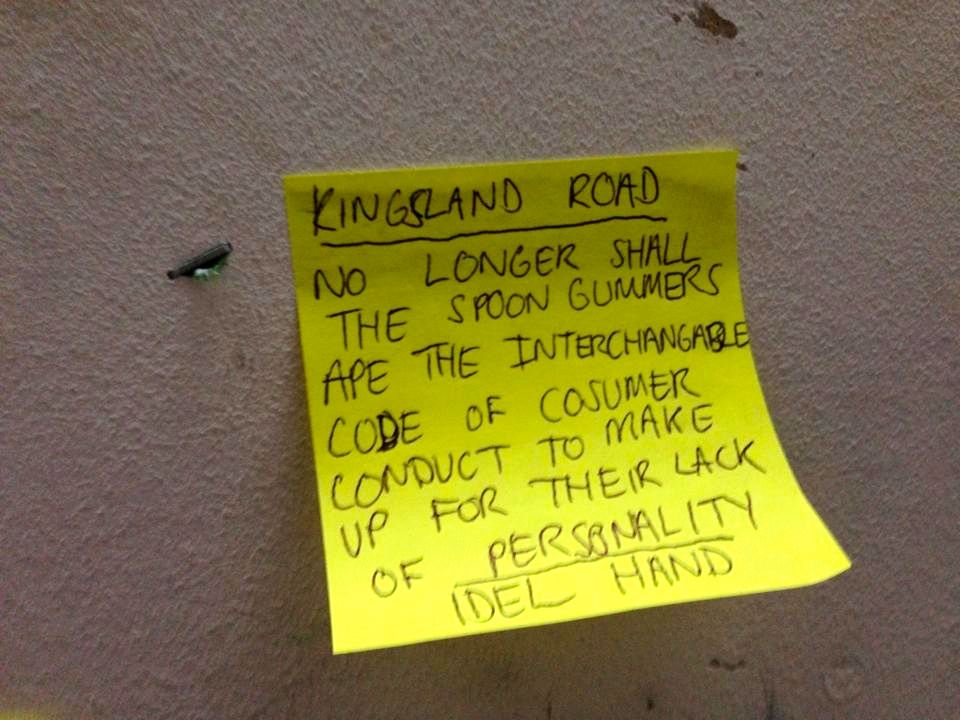 KINGSLAND ROAD
NO LONGER SHALL
THE SPOON GUMMERS
APE THE INTERCHANGABLE
CODE OF COSUMER
CONDUCT TO MAKE
UP FOR THEIR LACK
OF PERSONALITY
IDEL HAND